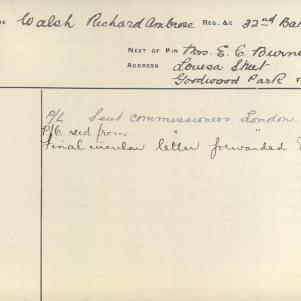 Walsh Richard Ambrose REG. &C 32nd Bat
NEXT OF KIN Mrs. E. C. Burne
ADDRESS Louisa Street
Goodwood Park
P/L Sent commissioners London.
P/C recd from "
Final circular letter forwarded